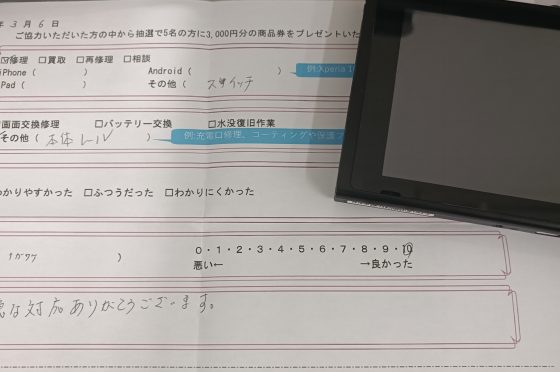 年 3 月 6 日
ご協力いただいた方の中から抽選で5名の方に3,000円分の商品券をプレゼントいた
修理 □買取 □再修理 □相談
iPhone ( ) Android (
例:Xperia
Pad ( ) その他 ( スイッチ
画面交換修理 □バッテリー交換 □水没復旧作業
その他 ( 本体レール )
例:充電口修理、コーティングや保護フ
わかりやすかった □ふつうだった □わかりにくかった
0・1・2・3・4・5・6・7・8・9・10
ナガサワ )
悪い← →良かった
な対応ありがとうございます。